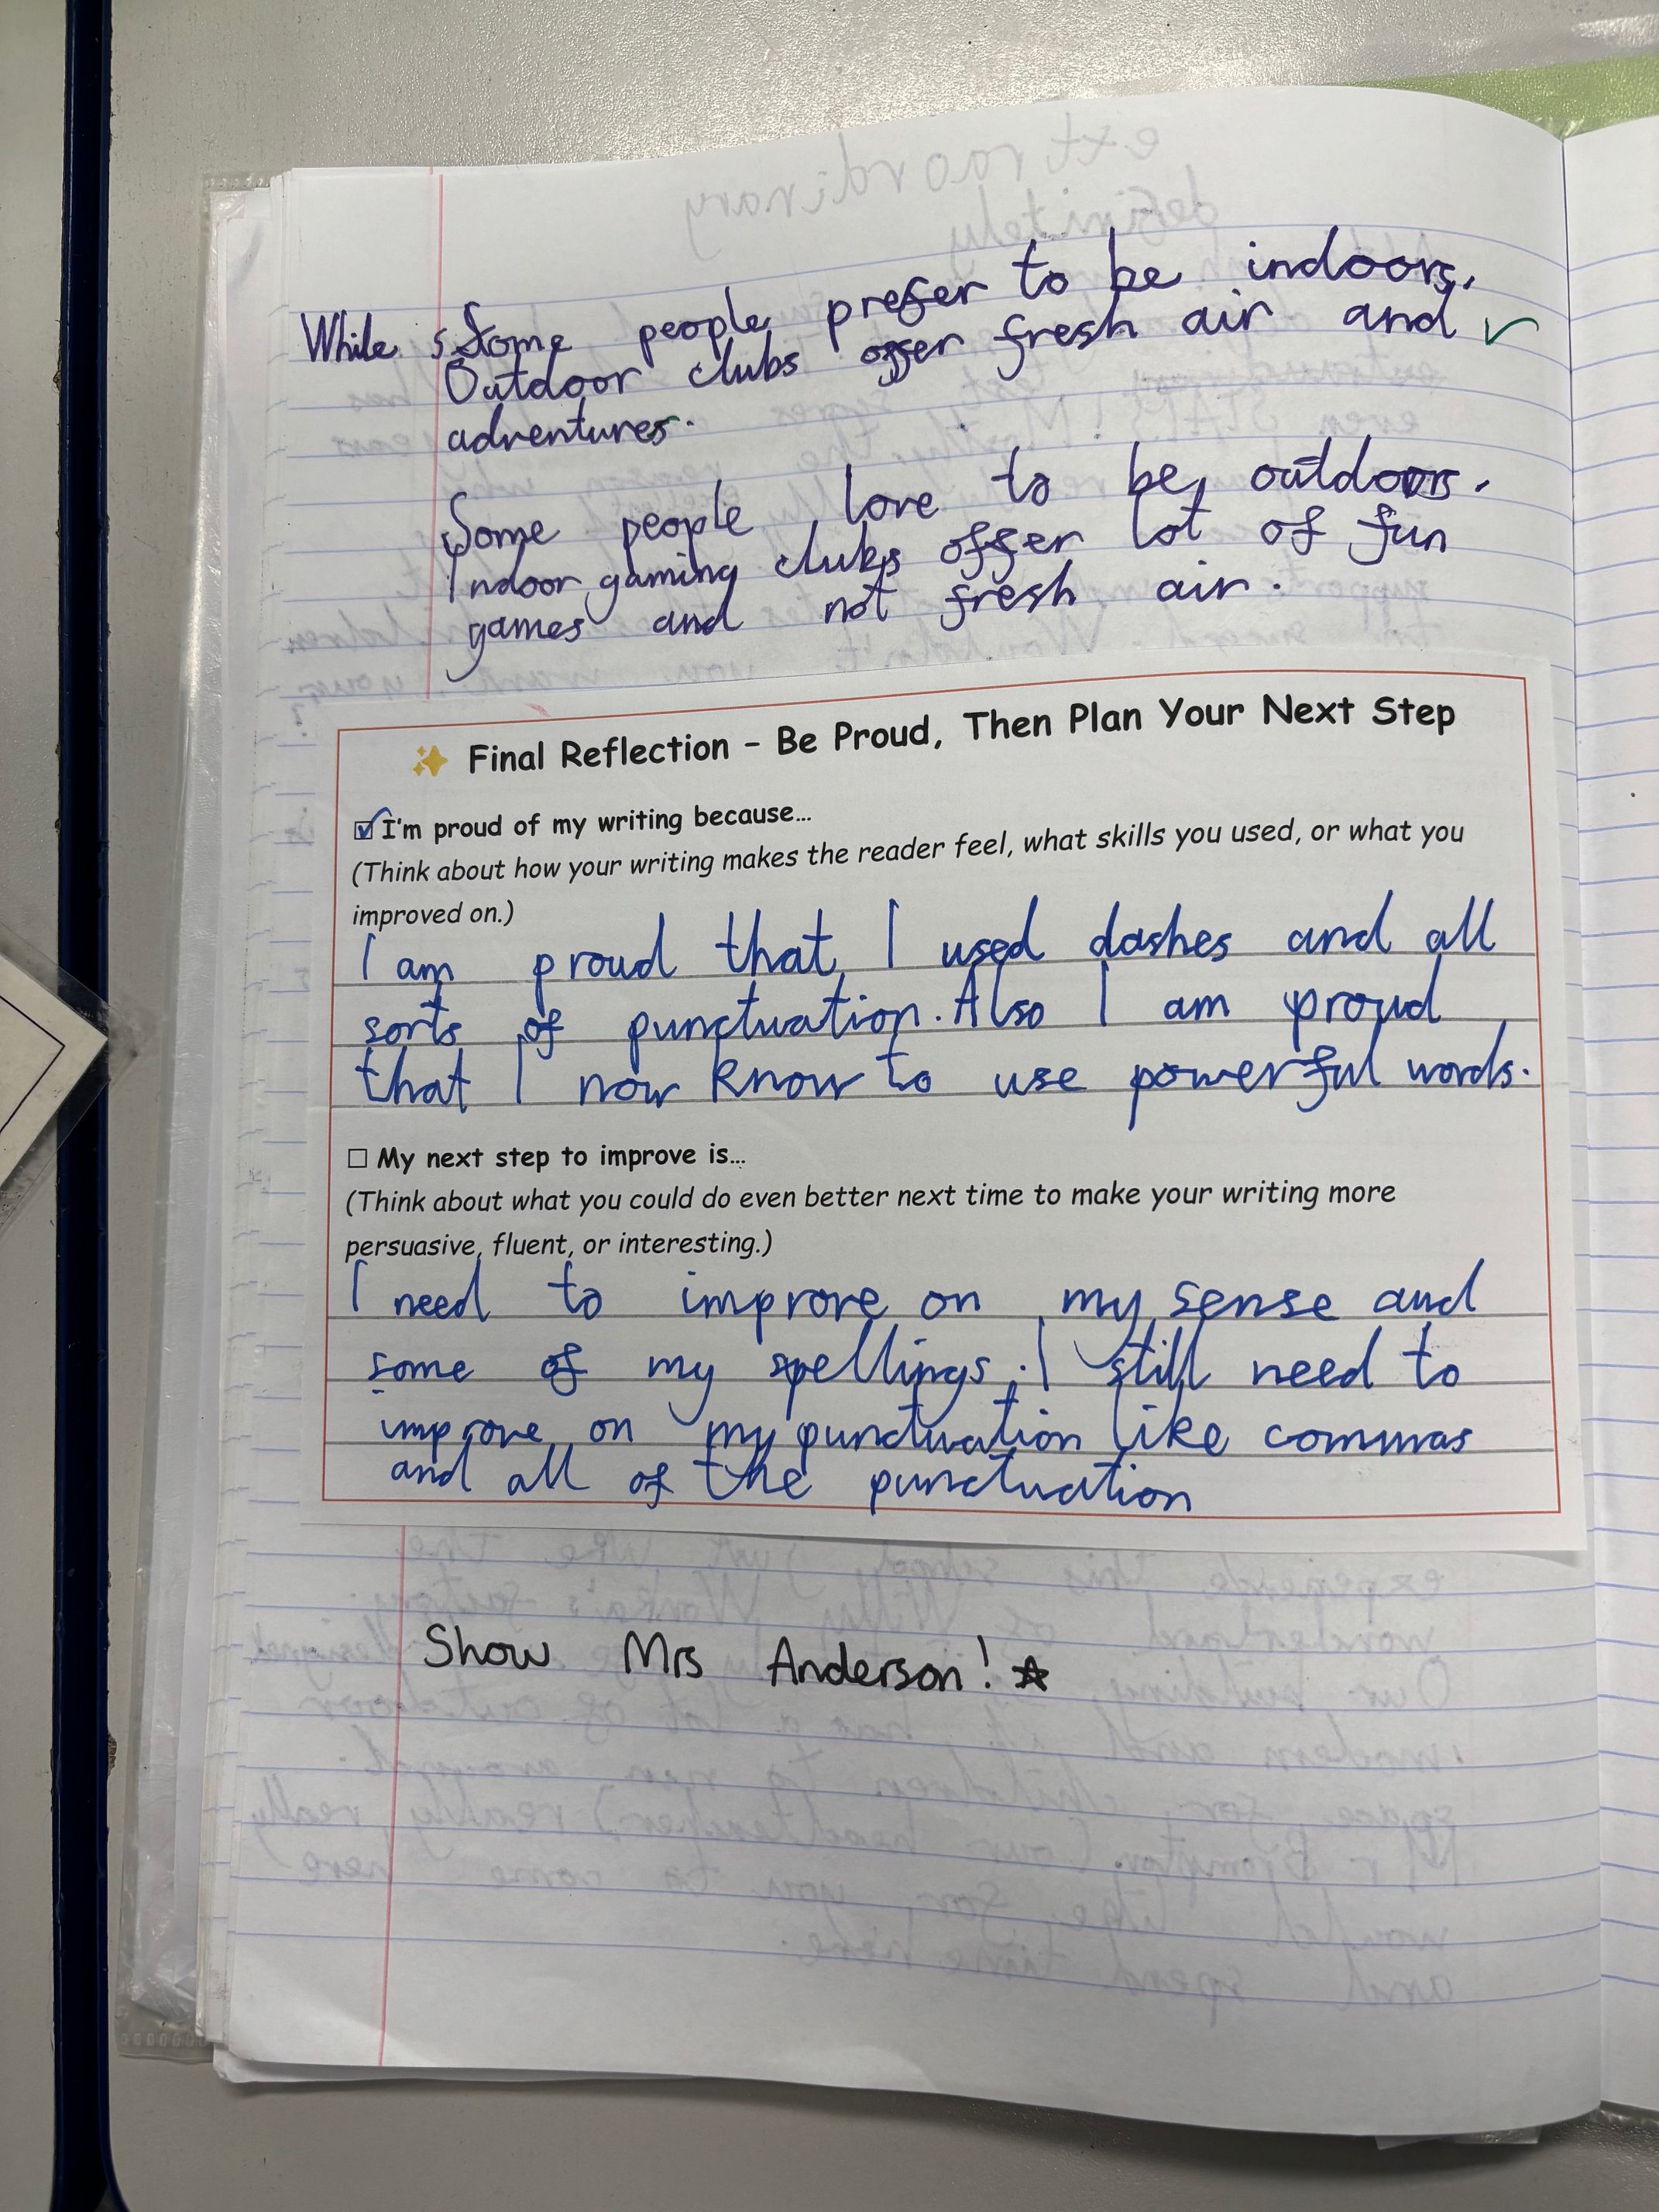 While some people prefer to be indoors,
Outdoor clubs offer fresh air and
adventures.
Some people love to be outdoors.
Indoor gaming clubs offer lot of fun
games and not fresh air.
Final Reflection – Be Proud, Then Plan Your Next Step
I'm proud of my writing because...
(Think about how your writing makes the reader feel, what skills you used, or what you
improved on.)
I am proud that I used dashes and all
sorts of punctuation. Also I am proud
that I now know to use powerful words.
My next step to improve is...
(Think about what you could do even better next time to make your writing more
persuasive, fluent, or interesting.)
I need to improve on my sense and
some of my spellings. I still need to
improve on my punctuation like commas
and all of the punctuation
Show Mrs Anderson!